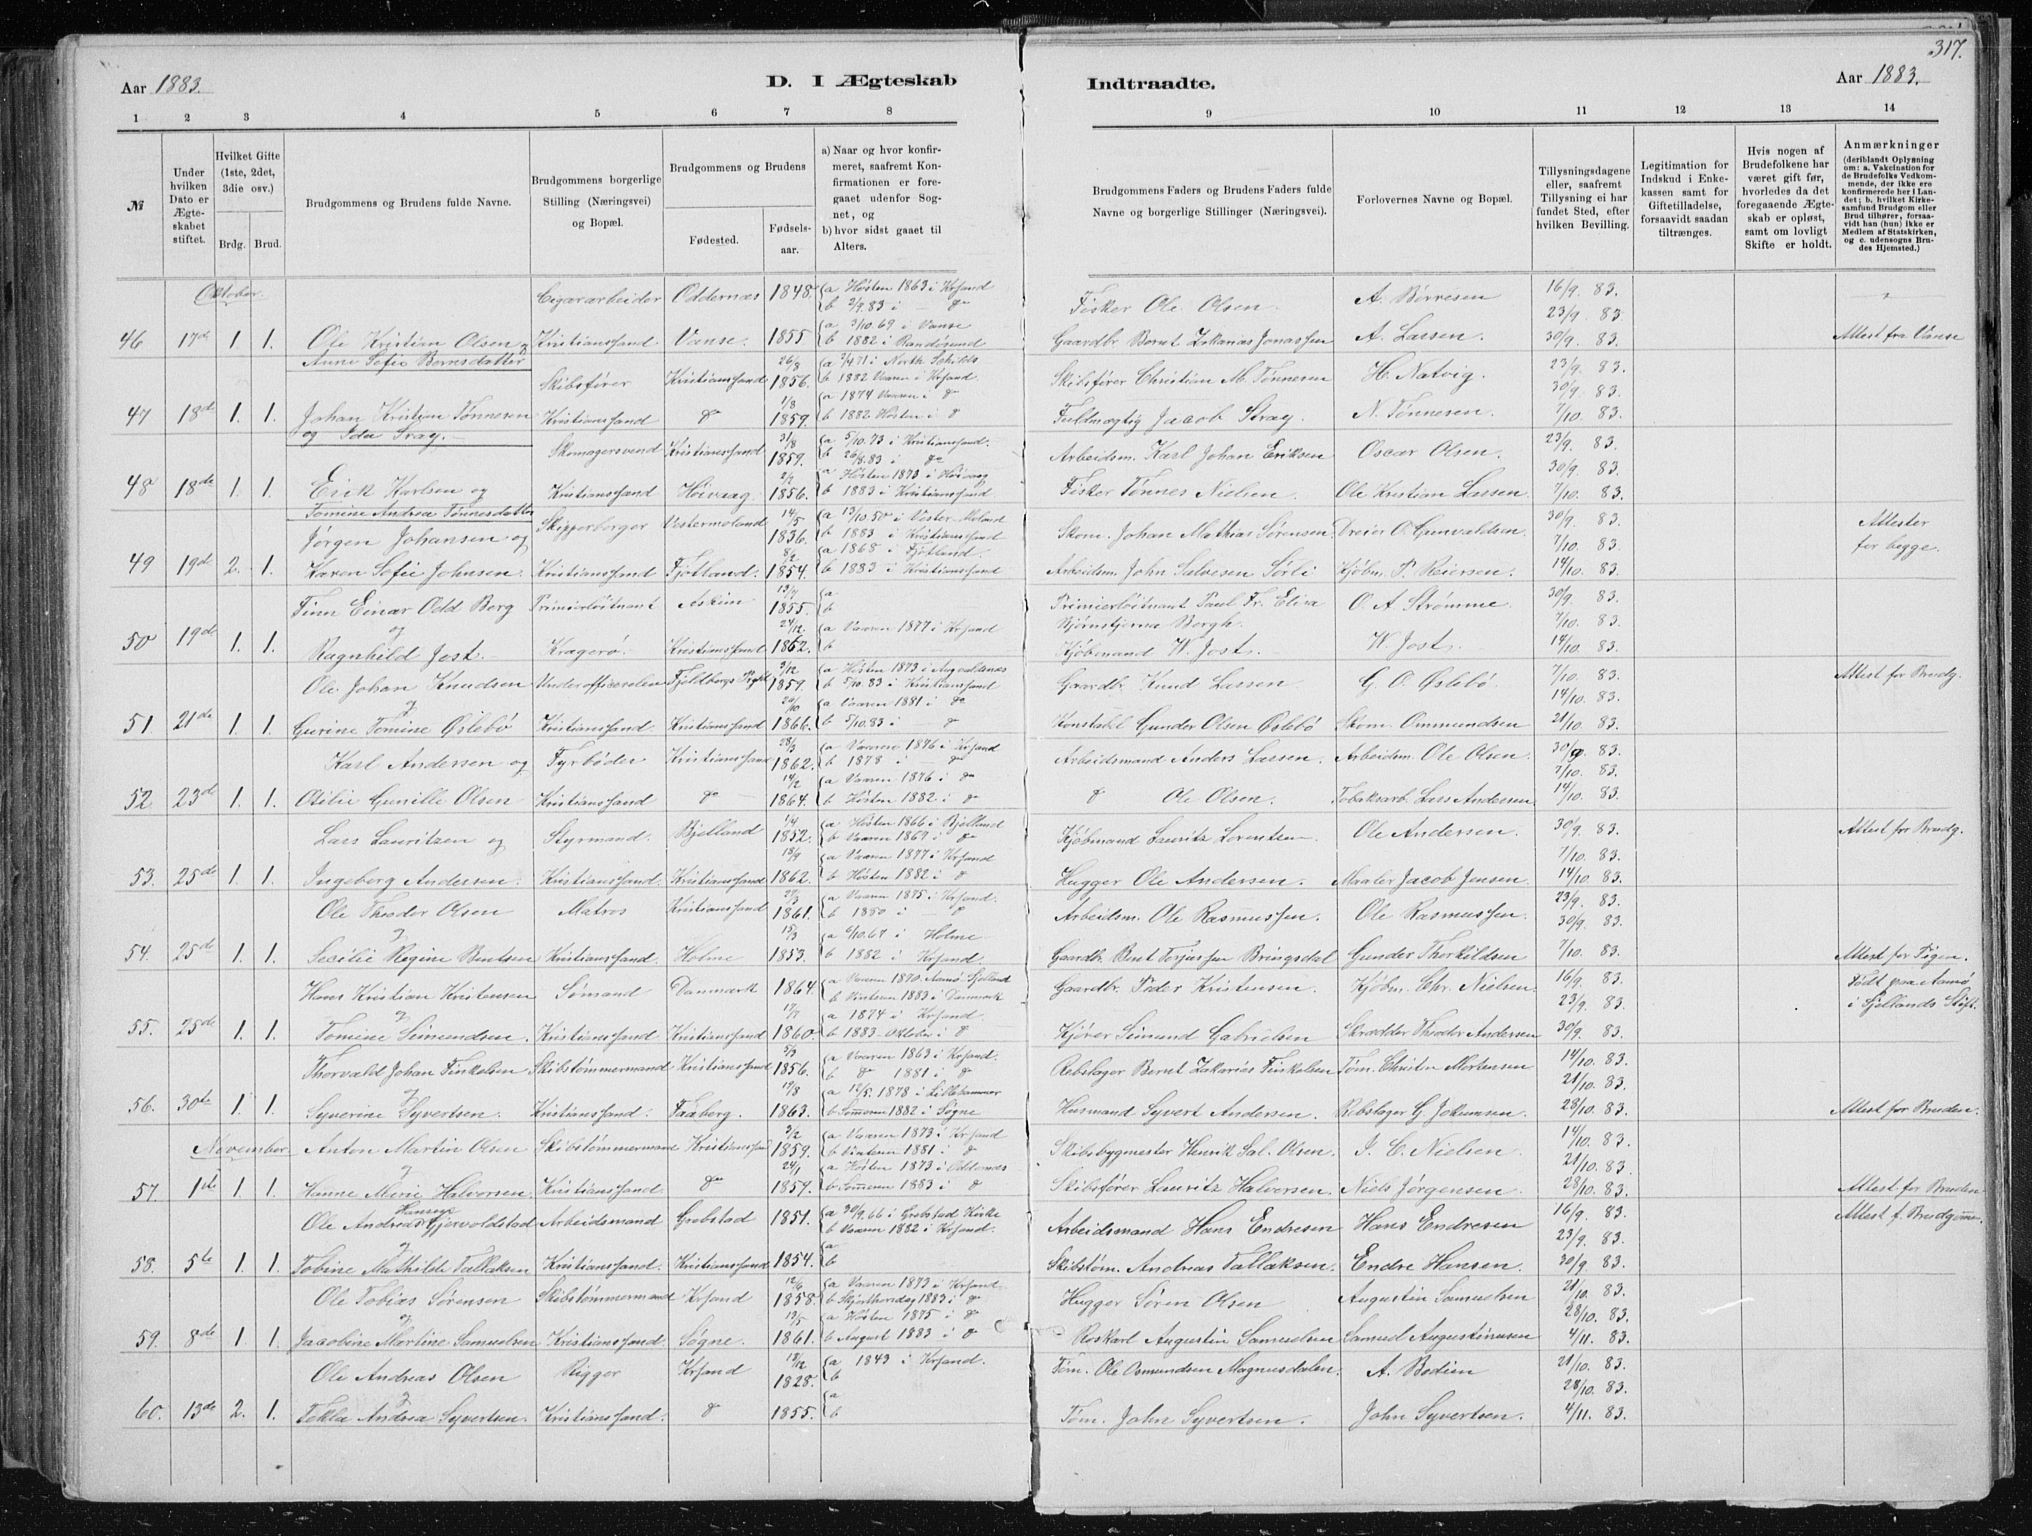 317.
Aar 1883.
D. I Ægteskab Indtraadte.
Aar 1883.
1 2 3 4 5 6 7 8 9 10 11 12 13 14
№
Under hvilken Dato er Ægteskabet stiftet.
Hvilket Gifte (1ste, 2det, 3die osv.)
Brdg. Brud.
Brudgommens og Brudens fulde Navne.
Brudgommens borgerlige Stilling (Næringsvei) og Bopæl.
Brudgommens og Brudens
Fødested.
Fødselsaar.
a) Naar og hvor konfirmeret, saafremt Konfirmationen er foregaaet udenfor Sognet, og
b) hvor sidst gaaet til Alters.
Brudgommens Faders og Brudens Faders fulde Navne og borgerlige Stillinger (Næringsvei).
Forlovernes Navne og Bopæl.
Tillysningsdagene eller, saafremt Tillysning ei har fundet Sted, efter hvilken Bevilling.
Legitimation for Indskud i Enkekassen samt for Giftetilladelse, forsaavidt saadan tiltrænges.
Hvis nogen af Brudefolkene har været gift før, hvorledes da det foregaaende Ægteskab er opløst, samt om lovligt Skifte er holdt.
Anmærkninger
(deriblandt Oplysning om: a. Vakcination for de Brudefolks Vedkommende, der ikke ere konfirmerede her i Landet; b. hvilket Kirkesamfund Brudgom eller Brud tilhører, forsaavidt han (hun) ikke er Medlem af Statskirken, og c. udensogns Brudes Hjemsted.)
Oktober. Cigararbeider Oddernæs 1848. a Høsten 1863 i Krsand Fisker Ole Olsen A. Børresen 16/9. 83.
b 2/9.83 i do 23/9. 83.
46 17de 1. 1. Ole Kristian Olsen og Kristianssand Vanse. 1855 a 3/10.69 i Vanse
b 1882 i Randøsund Gaardbr. Bernt Zakarias Jonassen A. Lassen. 30/9. 83. Attest fra Vanse
Anne Sofie Berntsdatter
Skibsfører Kristianssand 26/3 1856. a 2/4 71 i North Schilds
b 1882 Vaaren i Krsand Skibsfører Christian M. Tønnesen H. Natvig. 23/9. 83.
30/9. 83.
47 18de 1. 1. Johan Kristian Tønnesen Kristianssand do 1/8 1859. a 1874 Vaaren i do
b 1882 Høsten i do Fuldmægtig Jacob Stray. N. Tønnesen. 7/10. 83.
og Ida Stray.
Skomagersvend Kristianssand 31/8 1859. a 5/10.73 i Kristianssand.
b 26/8.83 i do Arbeidsm. Karl Johan Eriksen Oscar Olsen. 23/9. 83.
30/9. 83.
48 18de 1. 1. Erik Karlsen og Kristianssand Høivaag. 1856. a Høsten 1873 i Høivaag
b 1883 i Kristianssand Fisker Tønnes Nielsen. Ole Kristian Lassen. 7/10. 83.
Tomine Andrea Tønnesdatter
Jørgen Johansen og Skipperborger Vestermoland 14/5 1836. a 13/10.50 i Vester Moland
b 1883 i Kristianssand Skom. Johan Mathias Sørensen. Dreier O. Gunvaldsen 30/9. 83. Attester
7/10. 83. for begge.
49 19de 2. 1. Karen Sofie Johnsen. Kristianssand Fjotland. 8/2 1854. a 1868 i Fjotland.
b 1883 i Kristianssand Arbeidsm. John Salvesen Sørli Kjøbm. P. Reiersen. 14/10. 83.
Finn Einar Odd Berg Primierløitnant Askim 1855. a
b Primierløitnant Paul Fr. Elisa O. A. Strømme 30/9. 83.
og Bjørnstjerna Bergh. 7/10. 83.
50 19de 1. 1. Ragnhild Jost. Kragerø. Kristianssand 24/12 1862. a Vaaren 1877 i Krsand
b Kjøbmand W. Jost. W. Jost. 14/10. 83.
Ole Johan Knudsen Underofficerelev Fjeldbergs Prgld 3/12 1859. a Høsten 1873 i
b 5/10.83 i Kristianssand Gaardbr. Knud Lassen G. O. Østebø 7/10. 83. Attest for Brudg.
14/10. 83.
51 21de 1. 1. Gurine Tomine Østebø Kristianssand Kristianssand 20/10 1866. a Vaaren 1881 i do
b 5/10.83 i do Konstabl Gunder Olsen Østebø Skom. Ommundsen 21/10. 83.
Karl Andersen og Fyrbøder Kristianssand 28/3 1862. a Vaaren 1876 i Krsand
b 1878 i do Arbeidsmand Anders Lassen. Arbeidsm. Ole Olsen. 30/9. 83.
7/10. 83.
52 23de 1. 1. Otilie Gunille Olsen Kristianssand do 14/2 1864. a Vaaren 1876 i do
b Høsten 1882 i do do Ole Olsen. Tobaksarb. Lars Andersen 14/10. 83.
Lars Lauritzen og Styrmand. Bjelland 1/4 1852. a Høsten 1866 i Bjelland
b Vaaren 1867 i do Kjøbmand Lauritz Lorentzen Ole Andersen. 30/9. 83. Attest for Brudg.
7/10. 83.
53. 25de 1. 1. Ingeborg Andersen. Kristianssand. Kristianssand. 18/9 1862. a Vaaren 1877 i Krsand
b Høsten 1882 i do Hugger Ole Andersen. Maaler Jacob Jensen. 14/10. 83.
Ole Theodor Olsen Matros Kristianssand 27/3 1861. a Vaaren 1875 i Krsand.
b 1880 i do Arbeidsm. Ole Rasmussen. Ole Rasmussen. 23/9. 83.
30/9. 83.
54. 25de 1. 1. Secilie Regine Bentsen Kristianssand. Holme 15/3 1853. a 6/10.67 i Holme
b 1882 i Krsand. Gaardbr. Bent Torjussen Bringsdal Gunder Thorkildsen 7/10. 83. Attest for Pigen.
Hans Kristian Kristensen Sømand Danmark 1864. a Vaaren 1870 Aamø Sjelland
b Vinteren 1883 i Danmark Gaardbr. Peder Kristensen. Kjøbm. Chr. Nielsen. 16/9. 83. Født paa Aamø
23/9. 83. i Sjellands Stift.
55. 25de 1. 1. Tomine Simundsen. Kristianssand. Kristianssand 17/7 1860. a 1874 i Krsand.
b 1883. Oktober i do Kjører Simund Gabrielsen Skrædder Theodor Andersen 30/9. 83.
Thorvald Johan Finkelsen Skibstømmermand Kristianssand 5/3 1856. a Vaaren 1863 i Krsand.
b do 1881 i do Rebslager Bernt Zakarias Finkelsen Tøm. Christen Mortensen 14/10. 83.
21/10. 83.
56. 30te 1. 1. Syverine Syvertsen. Kristianssand. Faaberg. 19/8 1863. a 12/5. 1878 i Lillehammer
b Sommeren 1882 i Søgne Husmand Syvert Andersen. Rebslager G. Jokumsen. 28/10. 83. Attest for Bruden.
November. Anton Martin Olsen Skibstømmermand Kristianssand 3/2 1859. a Vaaren 1873 i Krsand
b Vinteren 1881 i do Skibsbygmester Henrik Sal. Olsen. I. C. Nielsen. 14/10. 83.
21/10. 83.
57. 1de 1. 1. Hanne Marie Halvorsen. Kristianssand. do 24/1 1857. a Høsten 1873 i Oddernæs
b Sommeren 1883 i do Skibsfører Lauritz Halversen. Niels Jørgensen. 28/10. 83. Attest for Bruden
Hansen
Ole Andreas Gjervoldstad Arbeidsmand Grebstad 1851. a 30/9.66 i Grebstad Kirke
b Vaaren 1882 i Krsand. Arbeidsmand Hans Endresen Hans Endresen 16/9. 83. Attest f. Brudgommen.
23/9. 83.
58. 5te 1. 1. Tobine Mathilde Tallaksen Kristianssand. Kristianssand 1854. a
b Skibstøm. Andreas Tallaksen. Endre Hansen. 30/9. 83.
Ole Tobias Sørensen Skibstømmermand Krsand 1858. a Vaaren 1873 i Krsand
b Skjærthorsdag 1883 i do Hugger Søren Olsen Augustin Samuelsen 21/10. 83.
28/10. 83.
59. 8de 1. 1. Jacobine Martine Samuelsen Kristianssand. Søgne. 1861. a Høsten 1875 i do
b August 1883 i do Roskarl Augustin Samuelsen Samuel Augustinusen 4/11. 83.
Ole Andreas Olsen Rigger Krsand 18/12 1828. a 1843 i Krsand.
b Tøm. Ole Osmundsen Magnusdalen. A. Bodien 21/10. 83.
28/10. 83.
60. 13de 2. 1. Tekla Andrea Syvertsen. Kristianssand. do 1855. a
b Tøm. John Syvertsen. John Syvertsen. 4/11. 83.